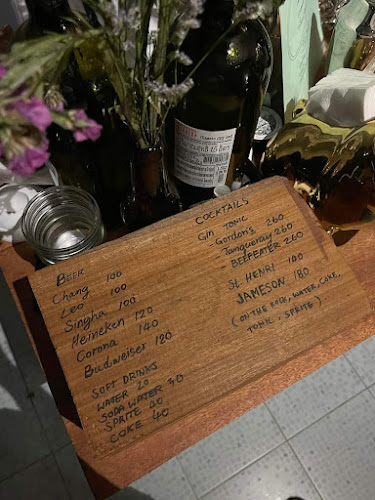 BEER
Chang 100
Leo 100
Singha 100
Heineken 120
Corona 140
Budweiser 180
SOFT DRINKS
WATER 20
SODA WATER 30
SPRITE 20
COKE 40
COCKTAILS
Gin Tonic
- Gordon's 260
- Tanqueray 260
- BEEFEATER 260
St. HENRI 100
JAMESON 180
(ON THE ROCK, WATER, COKE,
TONIC, SPRITE)